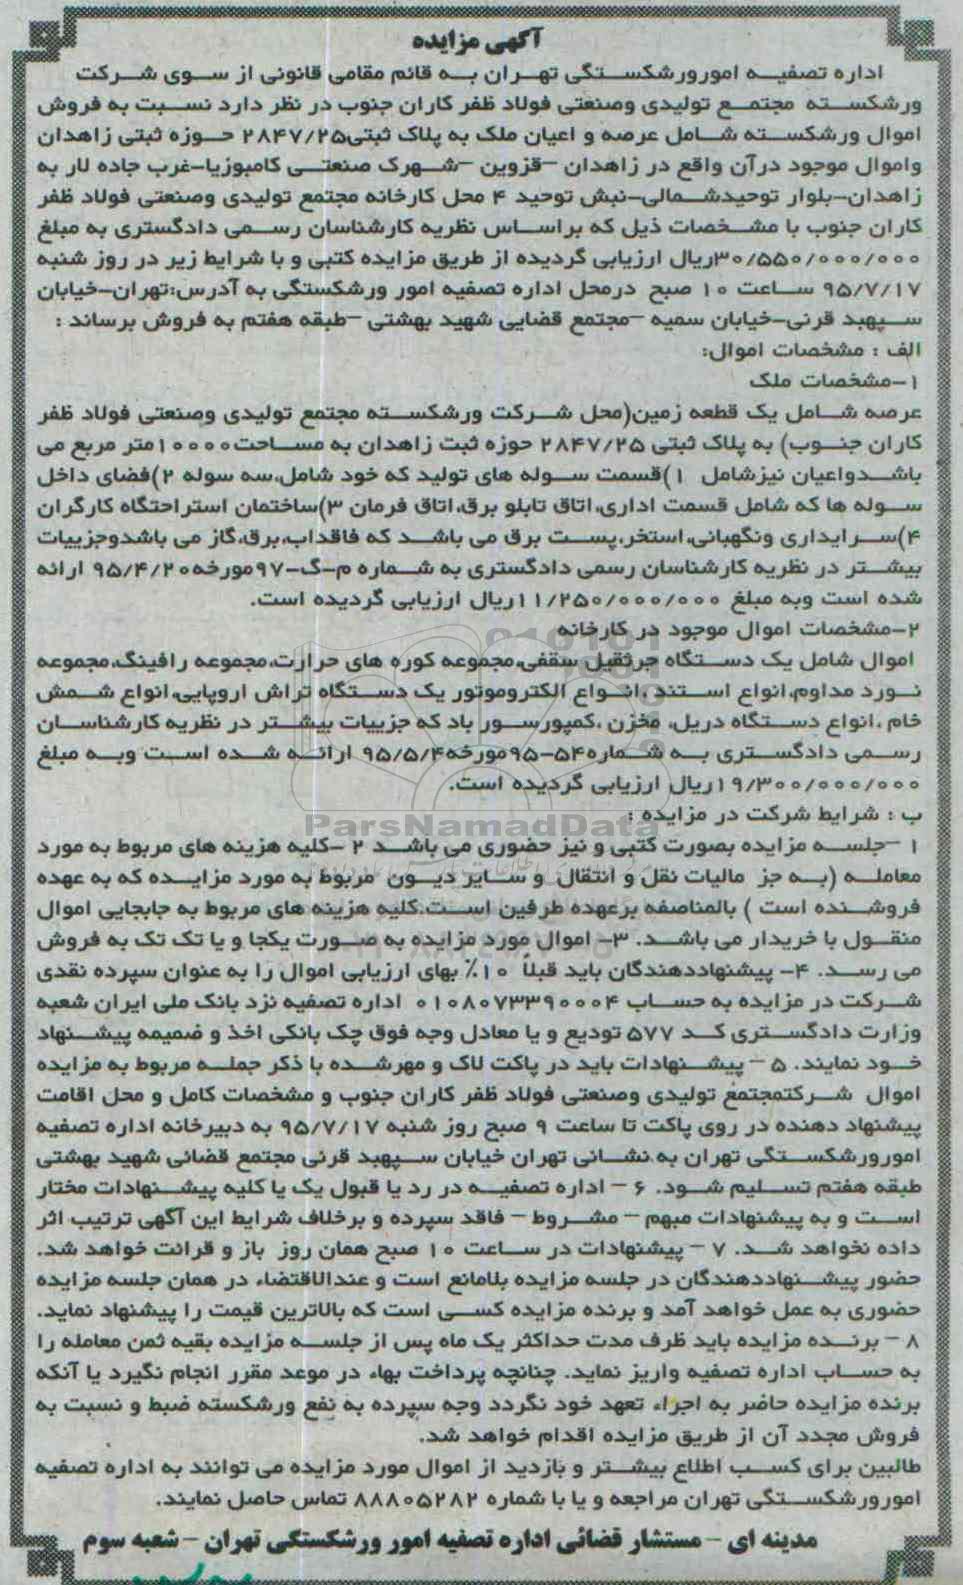 آگهی مزایده
اداره تصفیه امورورشکستگی تهران به قائم مقامی قانونی از سوی شرکت
ورشکسته مجتمع تولیدی وصنعتی فولاد ظفر کاران جنوب در نظر دارد نسبت به فروش
اموال ورشکسته شامل عرصه و اعیان ملک به پلاک ثبتی۲۸۴۷/۲۵ حوزه ثبتی زاهدان
واموال موجود درآن واقع در زاهدان –قزوین –شهرک صنعتی کامبوزیا–غرب جاده لار به
زاهدان–بلوار توحیدشمالی–نبش توحید ۴ محل کارخانه مجتمع تولیدی وصنعتی فولاد ظفر
کاران جنوب با مشخصات ذیل که براساس نظریه کارشناسان رسمی دادگستری به مبلغ
۳۰/۵۵۰/۰۰۰/۰۰۰ریال ارزیابی گردیده از طریق مزایده کتبی و با شرایط زیر در روز شنبه
۹۵/۷/۱۷ ساعت ۱۰ صبح درمحل اداره تصفیه امور ورشکستگی به آدرس:تهران–خیابان
سپهبد قرنی–خیابان سمیه –مجتمع قضایی شهید بهشتی –طبقه هفتم به فروش برساند :
الف : مشخصات اموال:
۱–مشخصات ملک
عرصه شامل یک قطعه زمین(محل شرکت ورشکسته مجتمع تولیدی وصنعتی فولاد ظفر
کاران جنوب) به پلاک ثبتی ۲۸۴۷/۲۵ حوزه ثبت زاهدان به مساحت۱۰۰۰۰متر مربع می
باشدواعیان نیزشامل ۱)قسمت سوله های تولید که خود شامل،سه سوله ۲)فضای داخل
سوله ها که شامل قسمت اداری،اتاق تابلو برق،اتاق فرمان ۳)ساختمان استراحتگاه کارگران
۴)سرایداری ونگهبانی،استخر،پست برق می باشد که فاقداب،برق،گاز می باشدوجزییات
بیشتر در نظریه کارشناسان رسمی دادگستری به شماره م–گ–۹۷مورخه۹۵/۴/۲۰ ارائه
شده است وبه مبلغ ۱۱/۲۵۰/۰۰۰/۰۰۰ریال ارزیابی گردیده است.
۲–مشخصات اموال موجود در کارخانه
اموال شامل یک دستگاه جرثقیل سقفی،مجموعه کوره های حرارت،مجموعه رافینگ،مجموعه
نورد مداوم،انواع استند ،انواع الکتروموتور یک دستگاه تراش اروپایی،انواع شمش
خام ،انواع دستگاه دریل، مخزن ،کمپورسور باد که جزییات بیشتر در نظریه کارشناسان
رسمی دادگستری به شماره۵۴–۹۵مورخه۹۵/۵/۴ ارائه شده است وبه مبلغ
۱۹/۳۰۰/۰۰۰/۰۰۰ریال ارزیابی گردیده است.
ParsNamadData
ب : شرایط شرکت در مزایده :
۱ –جلسه مزایده بصورت کتبی و نیز حضوری می باشد ۲ –کلیه هزینه های مربوط به مورد
معامله (به جز مالیات نقل و انتقال و سایر دیون مربوط به مورد مزایده که به عهده
فروشنده است ) بالمناصفه برعهده طرفین است.کلیه هزینه های مربوط به جابجایی اموال
منقول با خریدار می باشد. ۳– اموال مورد مزایده به صورت یکجا و یا تک تک به فروش
می رسد. ۴– پیشنهاددهندگان باید قبلاً ۱۰٪ بهای ارزیابی اموال را به عنوان سپرده نقدی
شرکت در مزایده به حساب ۰۱۰۸۰۷۳۳۹۰۰۰۴ اداره تصفیه نزد بانک ملی ایران شعبه
وزارت دادگستری کد ۵۷۷ تودیع و یا معادل وجه فوق چک بانکی اخذ و ضمیمه پیشنهاد
خود نمایند. ۵ – پیشنهادات باید در پاکت لاک و مهرشده با ذکر جمله مربوط به مزایده
اموال شرکتمجتمع تولیدی وصنعتی فولاد ظفر کاران جنوب و مشخصات کامل و محل اقامت
پیشنهاد دهنده در روی پاکت تا ساعت ۹ صبح روز شنبه ۹۵/۷/۱۷ به دبیرخانه اداره تصفیه
امورورشکستگی تهران به نشانی تهران خیابان سپهبد قرنی مجتمع قضائی شهید بهشتی
طبقه هفتم تسلیم شود. ۶ – اداره تصفیه در رد یا قبول یک یا کلیه پیشنهادات مختار
است و به پیشنهادات مبهم – مشروط – فاقد سپرده و برخلاف شرایط این آگهی ترتیب اثر
داده نخواهد شد. ۷ – پیشنهادات در ساعت ۱۰ صبح همان روز باز و قرائت خواهد شد.
حضور پیشنهاددهندگان در جلسه مزایده بلامانع است و عندالاقتضاء در همان جلسه مزایده
حضوری به عمل خواهد آمد و برنده مزایده کسی است که بالاترین قیمت را پیشنهاد نماید.
۸ – برنده مزایده باید ظرف مدت حداکثر یک ماه پس از جلسه مزایده بقیه ثمن معامله را
به حساب اداره تصفیه واریز نماید. چنانچه پرداخت بهاء در موعد مقرر انجام نگیرد یا آنکه
برنده مزایده حاضر به اجراء تعهد خود نگردد وجه سپرده به نفع ورشکسته ضبط و نسبت به
فروش مجدد آن از طریق مزایده اقدام خواهد شد.
طالبین برای کسب اطلاع بیشتر و بازدید از اموال مورد مزایده می توانند به اداره تصفیه
امورورشکستگی تهران مراجعه و یا با شماره ۸۸۸۰۵۲۸۲ تماس حاصل نمایند.
مدینه ای – مستشار قضائی اداره تصفیه امور ورشکستگی تهران – شعبه سوم